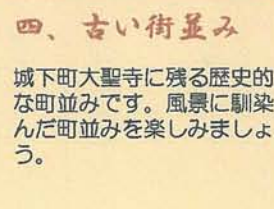 四、古い街並み
城下町大聖寺に残る歴史的
な町並みです。風景に馴染
んだ町並みを楽しみましょ
う。